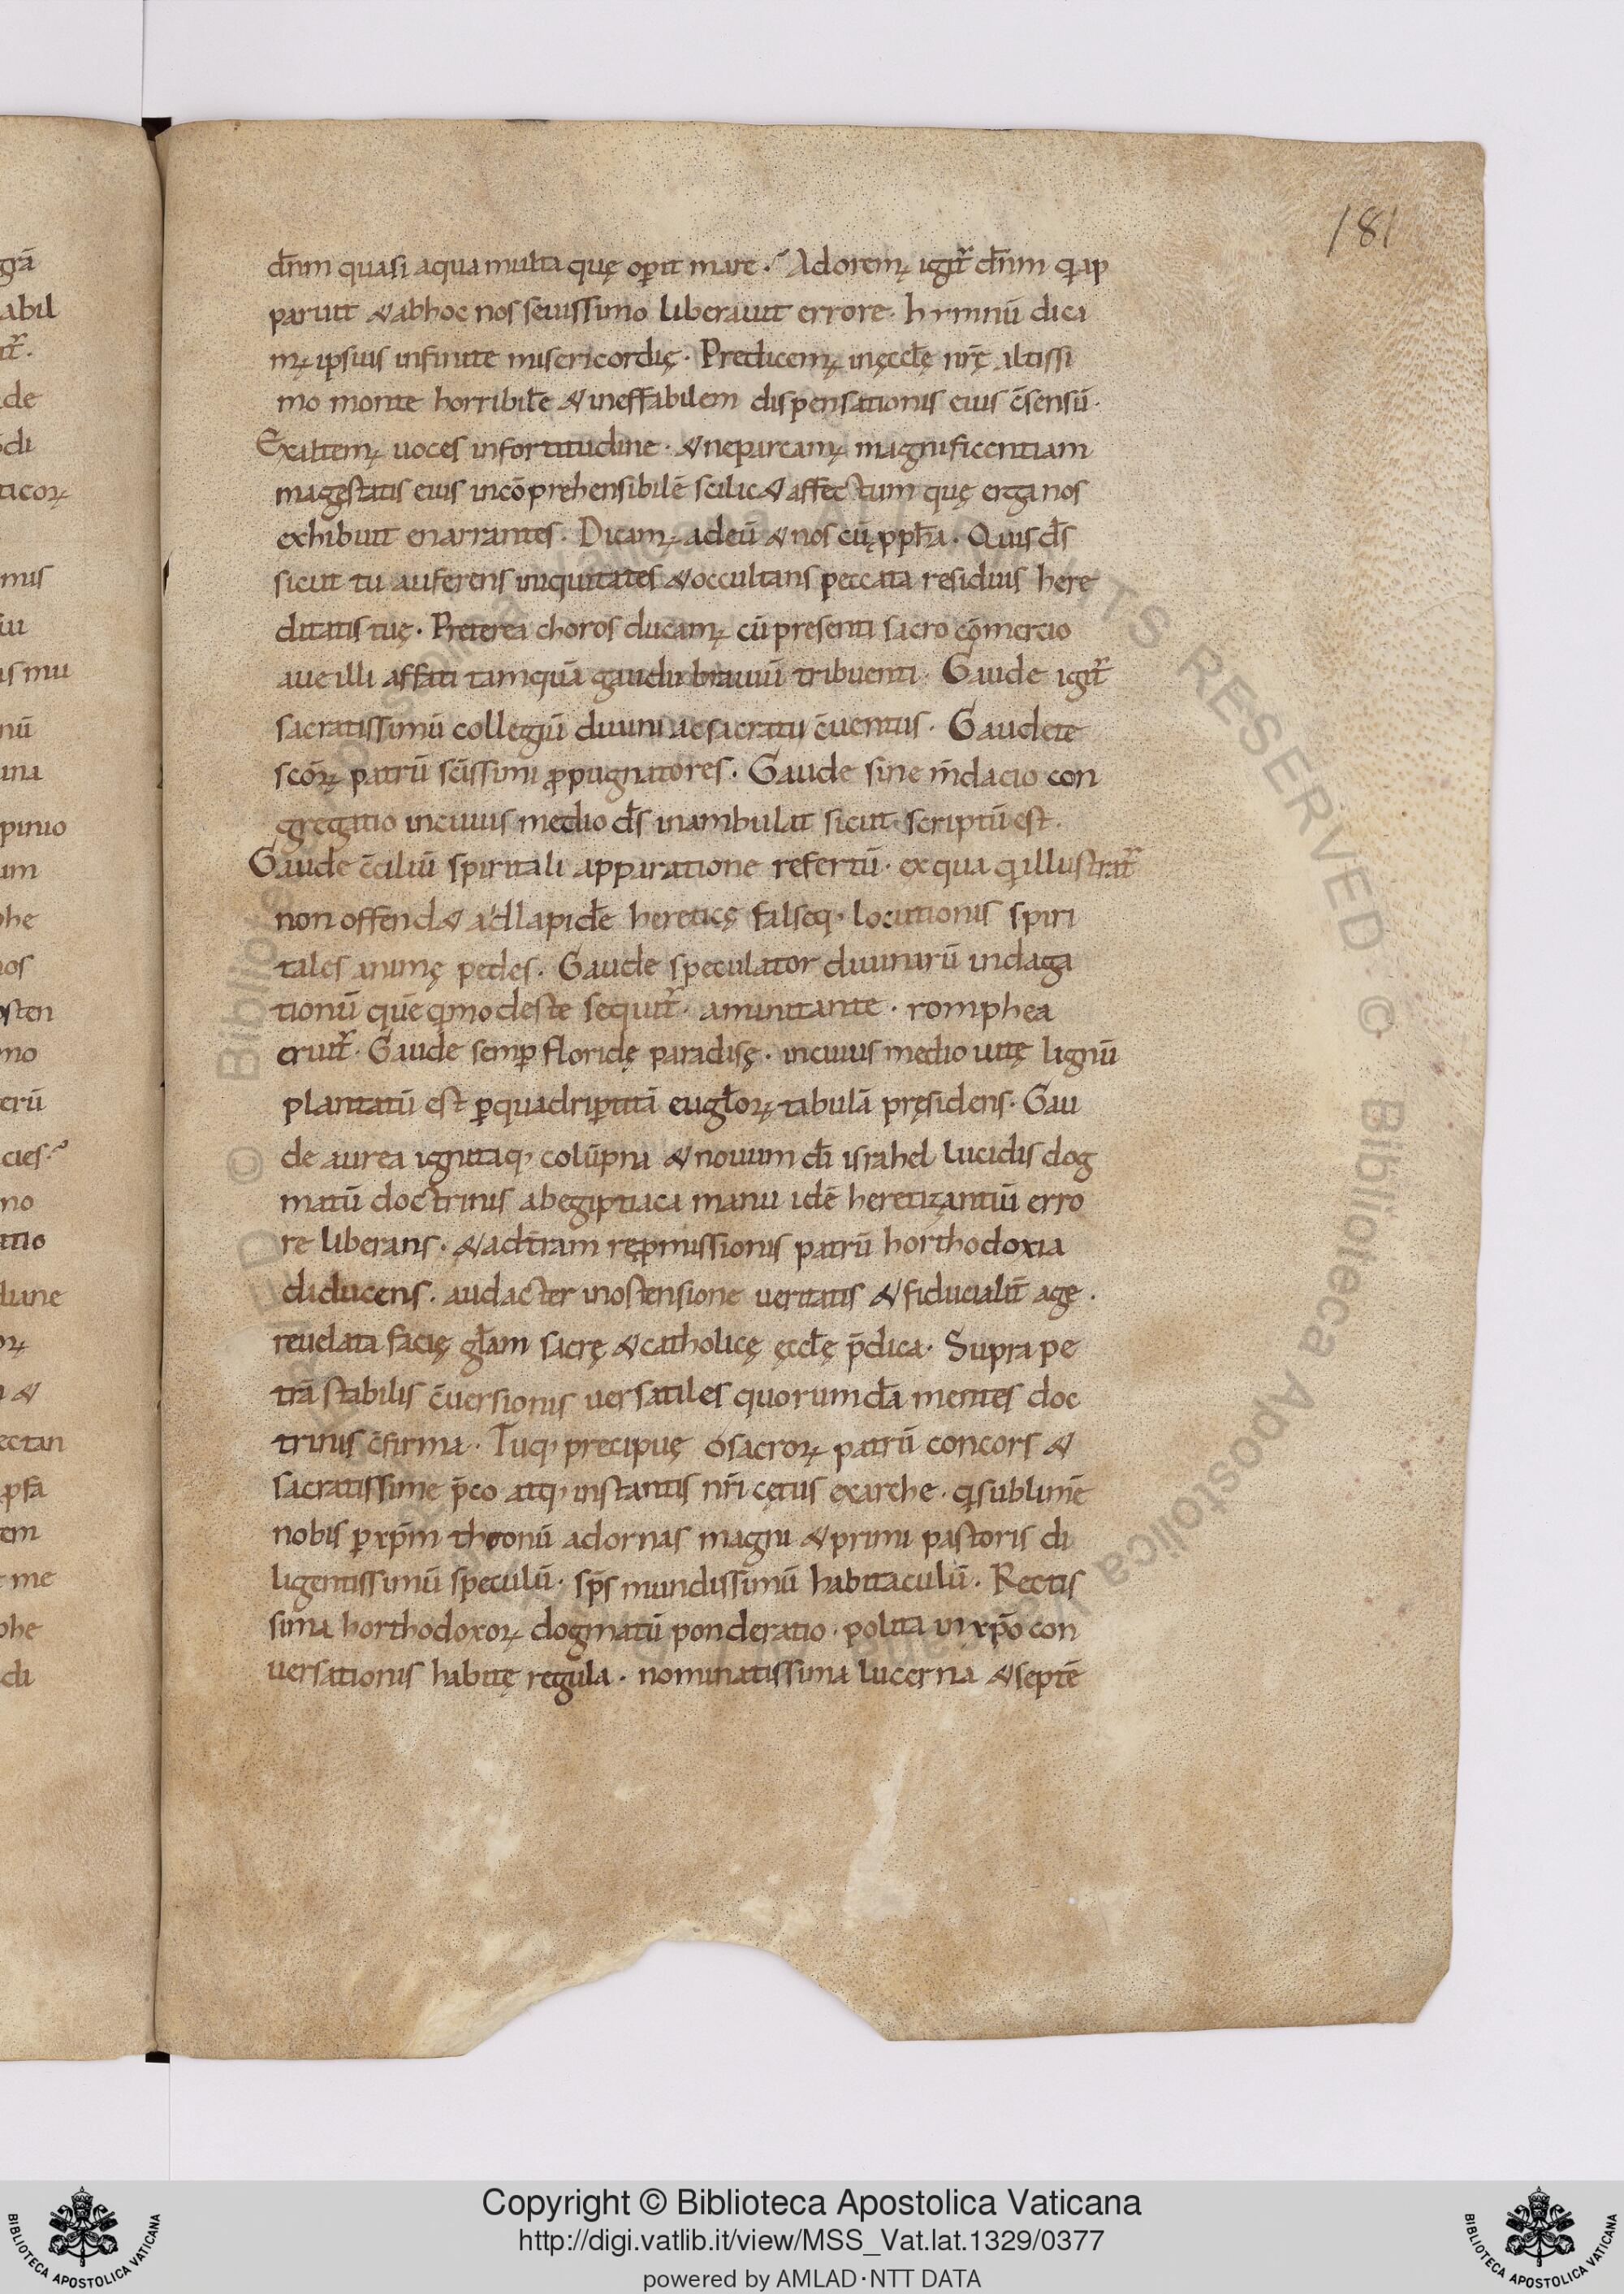 181
dn̄m quasi aqua multa quę op̱it mare. Adorem᷒ igit᷑ dn̄m q ap
paruit & ab hoc nos seuissimo liberauit errore. hymnū dica
m᷒ ipsius infinite misericordię. Predicem᷒ in ęcclę nr̄ę altissi
mo monte horribilē & ineffabilem dispensationis eius c̄sensū.
Exaltem᷒ uoces in fortitudine. & ne parcam᷒ magnificentiam
magestatis eius incōprehensibilē scilic& affectum quę erga nos
exhibuit enarrantes. Dicam᷒ ad eū & nos cū ꝓpha. Quis ds̄
sicut tu auferens iniquitates & occultans peccata residuis here
ditatis tuę. Preterea choros ducam᷒ cū presenti sacro cōmercio
aue illi affati tamquā gaudii brauiū tribuenti. Gaude igit᷑
sacratissimū collegiū diuini ac sacratii c̄uentus. Gaudete
sc̄oꝝ patrū sc̄issimi ꝓpugnatores. Gaude sine m̄dacio con
gregatio in cuius medio ds̄ inambulat sicut scriptū est.
Gaude c̄ciliū spiritali apparatione refertū. ex qua q illustrat᷑
non offend& ad lapidē hereticę falseq; locutionis spiri
tales animę pedes. Gaude speculator diuinarū indaga
tionū quē q modeste sequit᷑. a minitante. romphea
eruit᷑. Gaude semp̱ floridę paradisę. in cuius medio uitę lignū
plantatū est p̱ quadrip̱titā euglorꝝ tabulā pręsidens. Gau
de aurea ignitaq; colūpna & nouum dī israhel lucidis dog
matū doctrinis ab egiptiaca manu idē heretizantiū erro
re liberans. & ad t̄ram repmissionis patrū horthodoxia
diducens. audacter in ostensione ueritatis & fiducialit̄ age.
reuelata facię gl̄am sacrę & catholicę ęcclę p̄dica. Supra pe
trā stabilis c̄uersionis uersatiles quorumdā mentes doc
trinis c̄firma. Tuq; precipuę o sacroꝝ patrū concors &
sacratissime p̄co atq; instantis nr̄i cętus exarche. q sublimē
nobis p̱ xp̄m thronū adornas magni & primi pastoris di
ligentissimū speculū. sp̄s mundissimū habitaculū. Rectis
sima horthodoxoꝝ dogmatū ponderatio. polita in xp̄o con
uersationis habitę regula. nominatissima lucerna & septē
Copyright © Biblioteca Apostolica Vaticana
http://digi.vatlib.it/view/MSS_Vat.lat.1329/0377
powered by AMLAD·NTT DATA
BIBLIOTECA APOSTOLICA VATICANA
BIBLIOTECA APOSTOLICA VATICANA